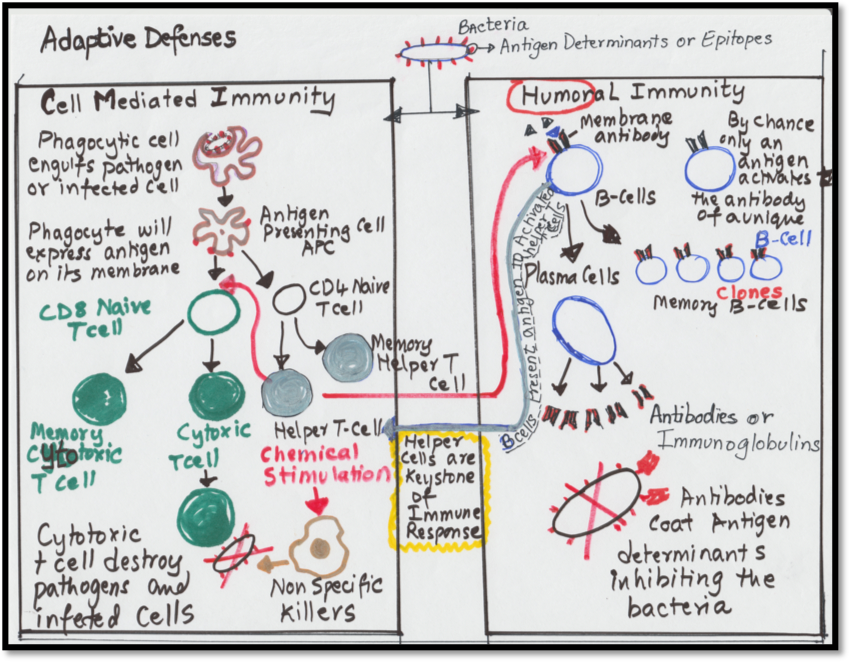 Adaptive Defenses
Bacteria
Antigen Determinants or Epitopes
Cell Mediated Immunity
Phagocytic cell
engulfs pathogen
or infected cell
Phagocyte will
express antigen
on its membrane
Antigen
Presenting Cell
APC
CD8 Naive
Tcell
CD4 Naive
Tcell
Memory
Helper T
Cell
Memory
Cytotoxic
T cell
Cytoxic
Tcell
Helper T-cell
Chemical
Stimulation
Cytotoxic
t cell destroy
pathogens and
infeted Cells
Non Specific
Killers
Helper
Cells are
Keystone
of
Immune
Response
Humoral Immunity
membrane
antibody
B-Cells
By chance
only an
antigen
activates
the antibody
of a unique
B-Cell
Clones
Memory B-cells
Plasma Cells
Bcells Present antigen ID Activated
helper T
Cells
Antibodies or
Immunoglobulins
Antibodies
coat Antigen
determinants
inhibiting the
bacteria